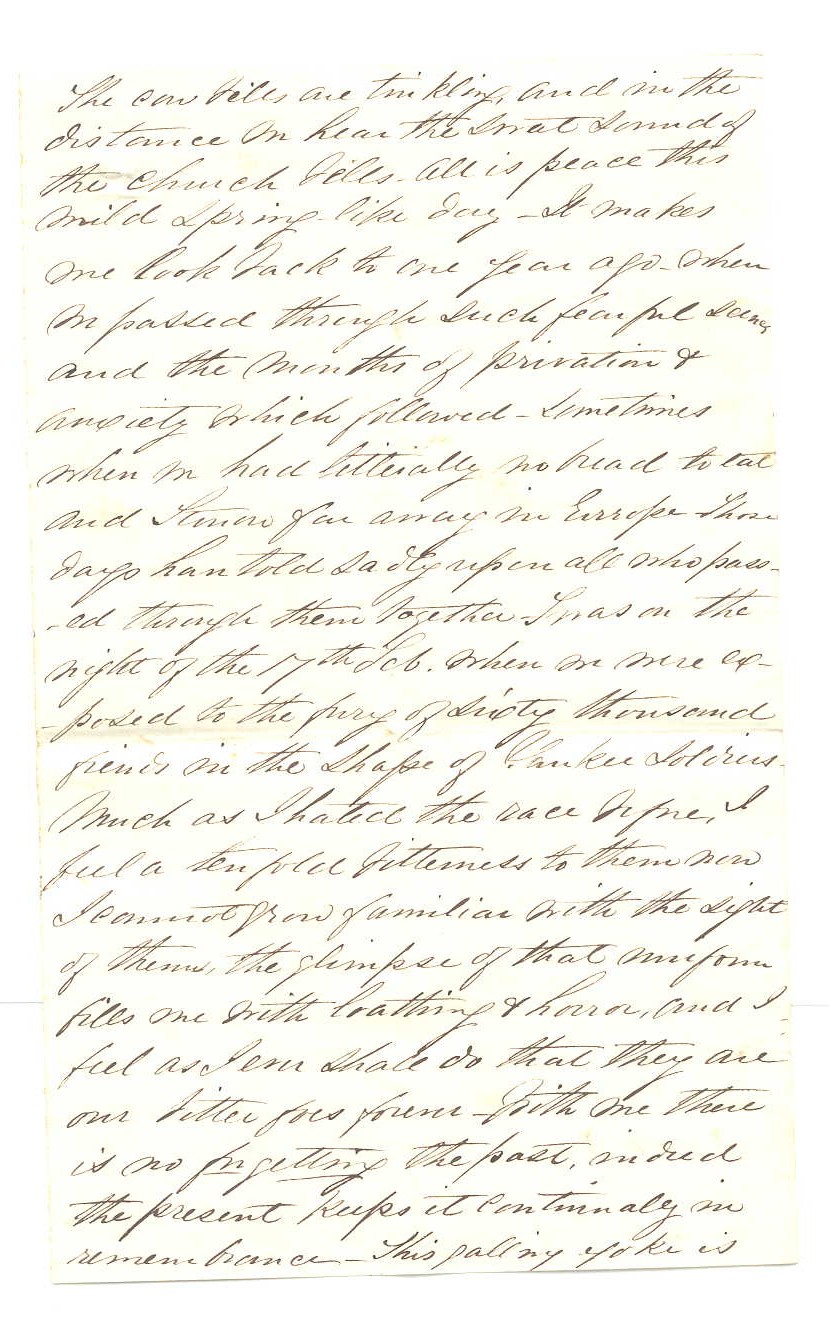 The cow bells are tinkling, and in the
distance we hear the sweet sound of
the church bells - all is peace this
mild spring-like day - It makes
me look back to one year ago - when
we passed through such fearful scenes
and the months of privation &
anxiety which followed - Sometimes
when we had litterally no bread to eat
and far away in Europe - Those
days have told sadly upon all who pass-
-ed through them together - Twas on the
night of the 17th Feb. when we were ex-
-posed to the fury of sixty thousand
fiends in the shape of Yankee Soldiers -
Much as I hated the race before, I
feel a ten fold bitterness to them now
I cannot grow familiar with the sight
of them, the glimpse of that uniform
fills me with loathing & horror, and I
feel as I ever shall do that they are
our bitter foes forever - With me there
is no forgetting the past, indeed
the present keeps it continually in
remembrance - This galling yoke is